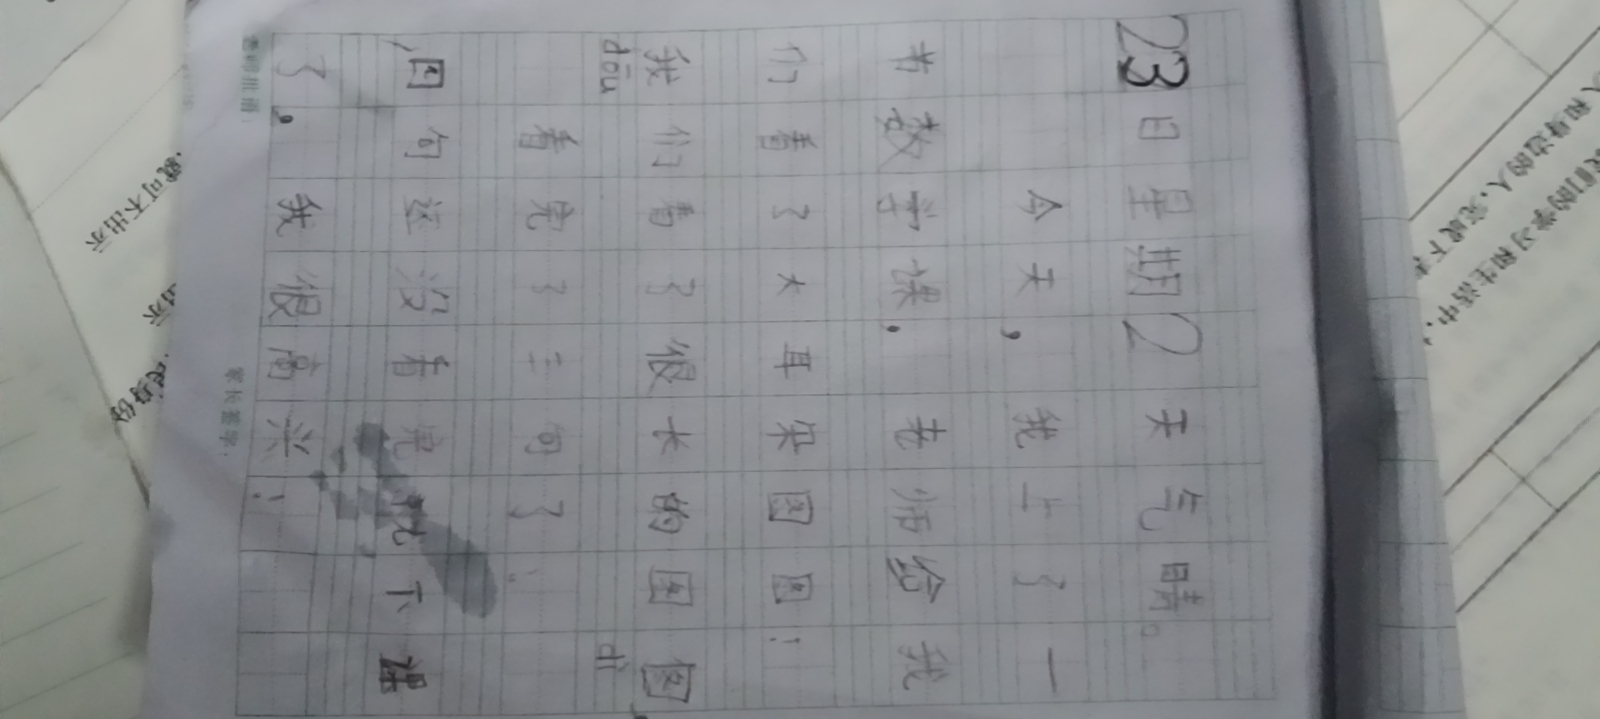 23日星期2天气晴。
今天,我上了一
节数学课,老师给我
们看了大耳朵图图!
我们看了很长的图图,
dōu dì
看完了三句了!
四句还没看完就下课
了,我很高兴!
老师批语:
家长签字: